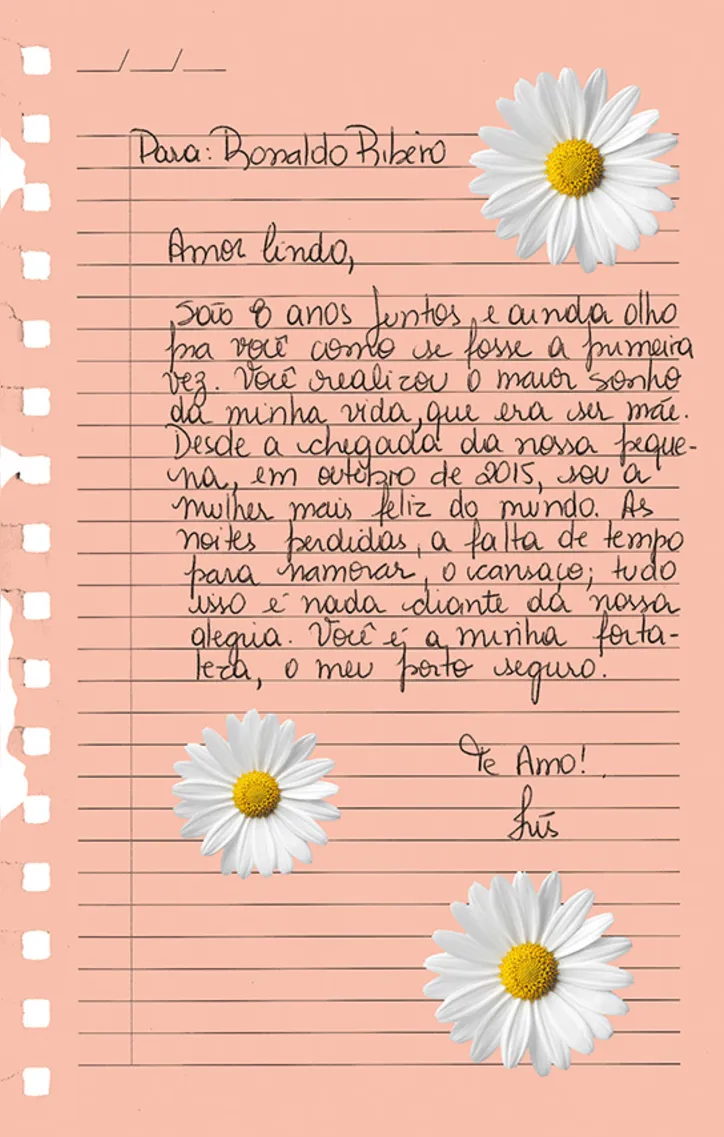 __/__/__
Para: Ronaldo Ribeiro
Amor lindo,
São 8 anos juntos, e ainda olho
pra você como se fosse a primeira
vez. Você realizou o maior sonho
da minha vida, que era ser mãe.
Desde a chegada da nossa peque-
na, em outubro de 2015, sou a
mulher mais feliz do mundo. As
noites perdidas, a falta de tempo
para namorar, o cansaço; tudo
isso é nada diante da nossa
alegria. Você é a minha forta-
leza, o meu porto seguro.
Te Amo!